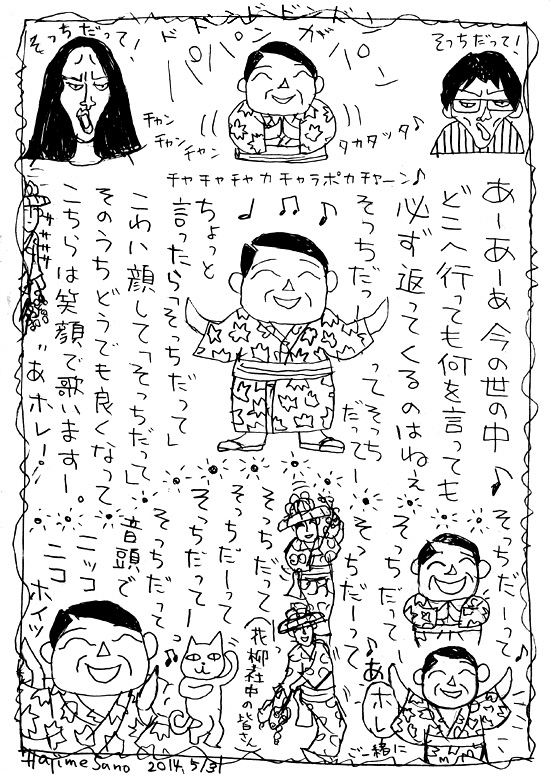 ドドンドドンド
パパンがパン
そっちだって！
そっちだって！
チャン
チャンチャン
チャン
タカタッタ♪
チャチャチャカチャラポカチャーン♪
あーあーあ今の世の中♪
どこへ行っても何を言っても
必ず返ってくるのはねぇ
そっちだっ
ってそっち
だってー
ちょっと
言ったら「そっちだって」
こわい顔して「そっちだって」
そのうちどうでも良くなって
こちらは笑顔で歌いますー。
"あホレー！
そっちだーって
そっちだって
そっちだーって
あホレ
ご一緒に
そっちだって
そっちだーって
そっちだってーっ
そっちだって
音頭で
ニッコ
ニコ
ホイッ
(花柳社中の皆さん)
Hajime Sano 2014. 5/31